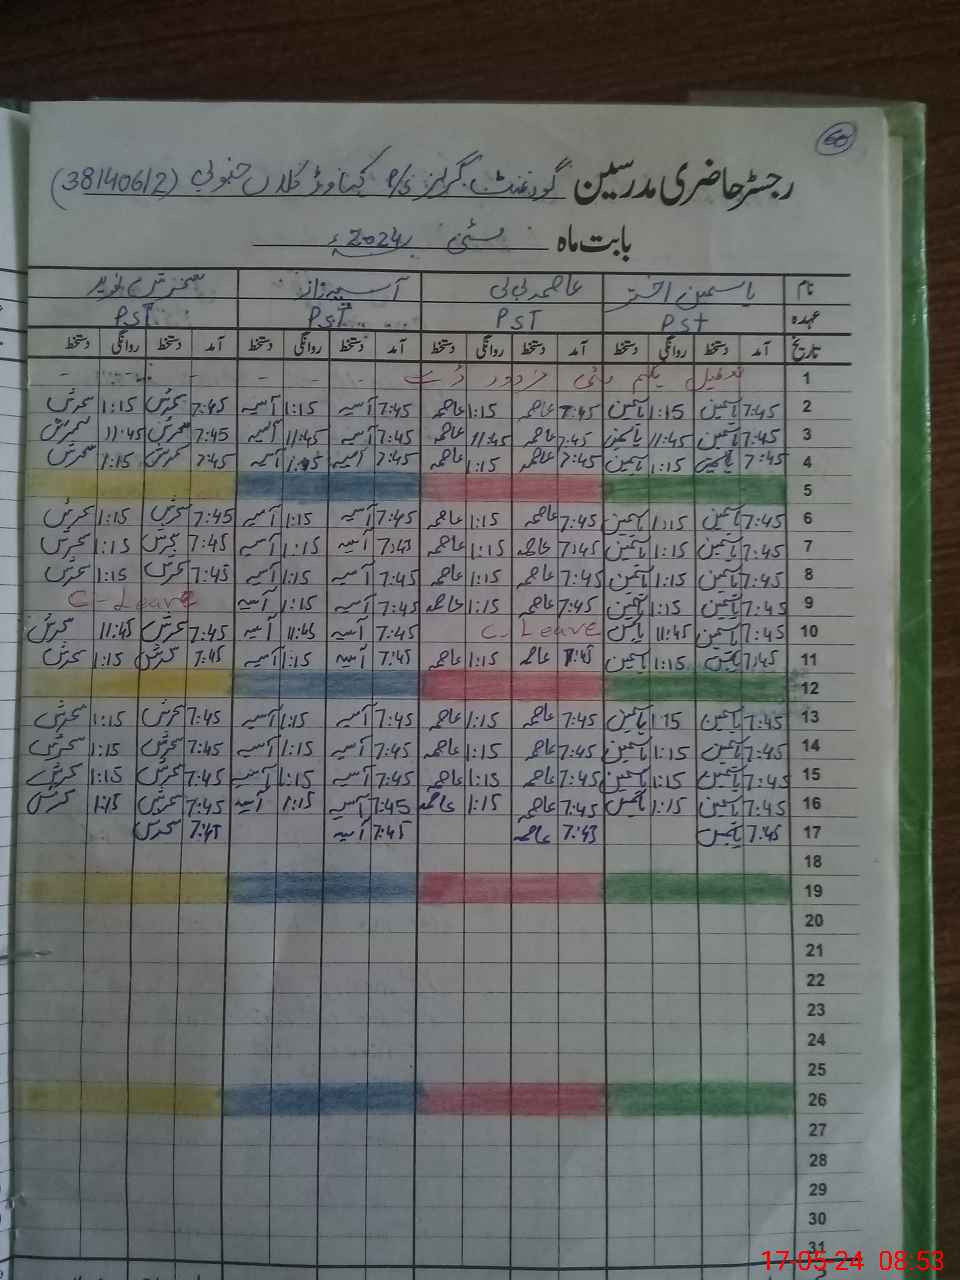 60
رجسٹر حاضری مدرسین گورنمنٹ گرلز P/S کلاں جنوبی (38140612)
بابت ماہ مئی 2024ء
نام یاسمین اختر عاصمہ بی بی آسیہ ناز سحرش
عہدہ PST PST PST PST
تاریخ آمد دستخط روانگی دستخط آمد دستخط روانگی دستخط آمد دستخط روانگی دستخط آمد دستخط روانگی دستخط
1 تعطیل یکم مئی مزدور ڈے - - - - -
2 7:45 یاسمین 1:15 یاسمین 7:45 عاصمہ 1:15 عاصمہ 7:45 آسیہ 1:15 آسیہ 7:45 سحرش 1:15 سحرش
3 7:45 یاسمین 11:45 یاسمین 7:45 عاصمہ 11:45 عاصمہ 7:45 آسیہ 11:45 آسیہ 7:45 سحرش 11:45 سحرش
4 7:45 یاسمین 1:15 یاسمین 7:45 عاصمہ 1:15 عاصمہ 7:45 آسیہ 1:15 آسیہ 7:45 سحرش 1:15 سحرش
5
6 7:45 یاسمین 1:15 یاسمین 7:45 عاصمہ 1:15 عاصمہ 7:45 آسیہ 1:15 آسیہ 7:45 سحرش 1:15 سحرش
7 7:45 یاسمین 1:15 یاسمین 7:45 عاصمہ 1:15 عاصمہ 7:43 آسیہ 1:15 آسیہ 7:45 سحرش 1:15 سحرش
8 7:45 یاسمین 1:15 یاسمین 7:45 عاصمہ 1:15 عاصمہ 7:45 آسیہ 1:15 آسیہ 7:45 سحرش 1:15 سحرش
9 7:45 یاسمین 1:15 یاسمین 7:45 عاصمہ 1:15 عاصمہ 7:45 آسیہ 1:15 آسیہ C-Leave
10 7:45 یاسمین 11:45 یاسمین C-Leave 7:45 آسیہ 11:45 آسیہ 7:45 سحرش 11:45 سحرش
11 7:45 یاسمین 1:15 یاسمین 7:45 عاصمہ 1:15 عاصمہ 7:45 آسیہ 1:15 آسیہ 7:45 سحرش 1:15 سحرش
12
13 7:45 یاسمین 1:15 یاسمین 7:45 عاصمہ 1:15 عاصمہ 7:45 آسیہ 1:15 آسیہ 7:45 سحرش 1:15 سحرش
14 7:45 یاسمین 1:15 یاسمین 7:45 عاصمہ 1:15 عاصمہ 7:45 آسیہ 1:15 آسیہ 7:45 سحرش 1:15 سحرش
15 7:45 یاسمین 1:15 یاسمین 7:45 عاصمہ 1:15 عاصمہ 7:45 آسیہ 1:15 آسیہ 7:45 سحرش 1:15 سحرش
16 7:45 یاسمین 1:15 یاسمین 7:45 عاصمہ 1:15 عاصمہ 7:45 آسیہ 1:15 آسیہ 7:45 سحرش 1:15 سحرش
17 7:45 یاسمین 7:43 عاصمہ 7:45 آسیہ 7:45 سحرش
18
19
20
21
22
23
24
25
26
27
28
29
30
31
17-05-24 08:53